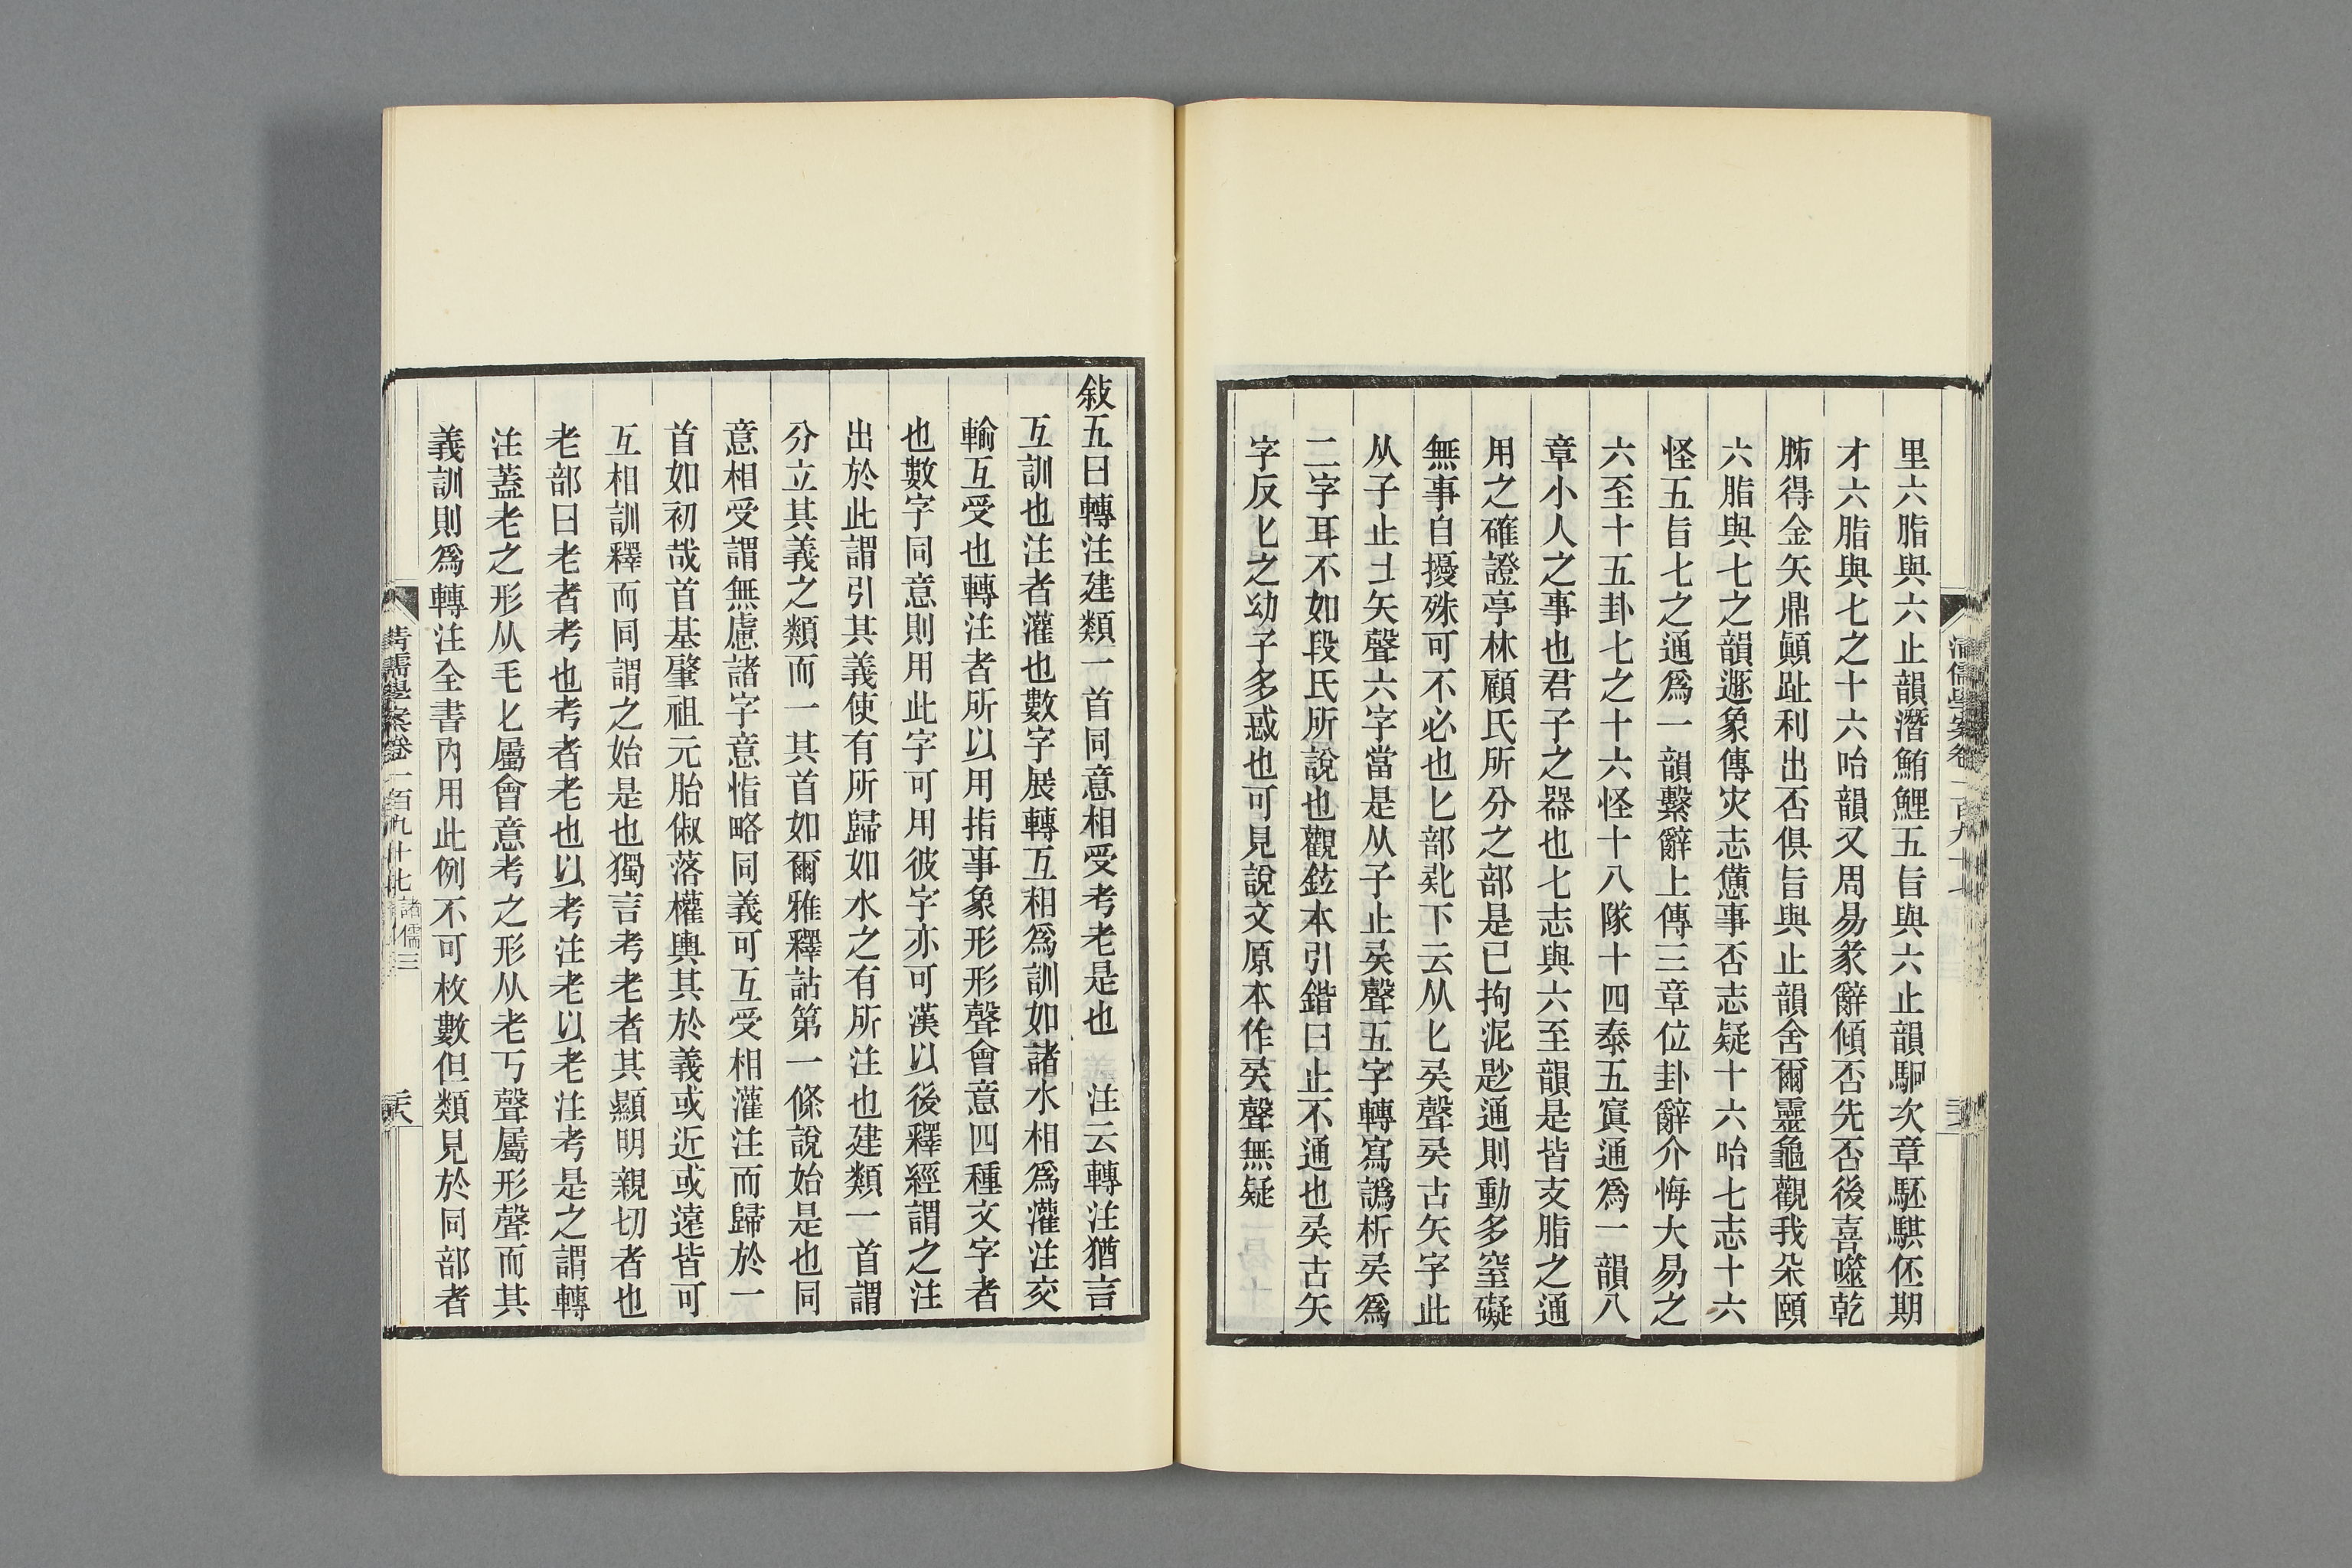 里六脂與六止韻潛鮪鯉五旨與六止韻駉次章駓騏伾期
才六脂與七之十六咍韻又周易彖辭傾否先否後喜噬乾
胏得金矢鼎顚趾利出否俱旨與止韻舍爾靈龜觀我朵頤
六脂與七之韻遯象傳灾志憊事否志疑十六咍七志十六
怪五旨七之通爲一韻繫辭上傳三章位卦辭介悔大易之
六至十五卦七之十六怪十八隊十四泰五寘通爲一韻八
章小人之事也君子之器也七志與六至韻是皆支脂之通
用之確證亭林顧氏所分之部是已拘泥尟通則動多窒礙
無事自擾殊可不必也匕部㲋下云从匕矣聲矣古矢字此
从子止𠤎矢聲六字當是从子止矣聲五字轉寫譌析矣爲
二字耳不如段氏所說也觀鉉本引鍇曰止不通也矣古矢
字反匕之幼子多惑也可見說文原本作矣聲無疑
清儒學案卷一百九十七
敍五曰轉注建類一首同意相受考老是也 注云轉注猶言
互訓也注者灌也數字展轉互相爲訓如諸水相爲灌注交
輸互受也轉注者所以用指事象形形聲會意四種文字者
也數字同意則用此字可用彼字亦可漢以後釋經謂之注
出於此謂引其義使有所歸如水之有所注也建類一首謂
分立其義之類而一其首如爾雅釋詁第一條說始是也同
意相受謂無慮諸字意恉略同義可互受相灌注而歸於一
首如初哉首基肇祖元胎俶落權輿其於義或近或遠皆可
互相訓釋而同謂之始是也獨言考老者其顯明親切者也
老部曰老者考也考者老也以考注老以老注考是之謂轉
注蓋老之形从毛匕屬會意考之形从老丂聲屬形聲而其
義訓則爲轉注全書內用此例不可枚數但類見於同部者
清儒學案卷一百九十七 諸儒三 二六